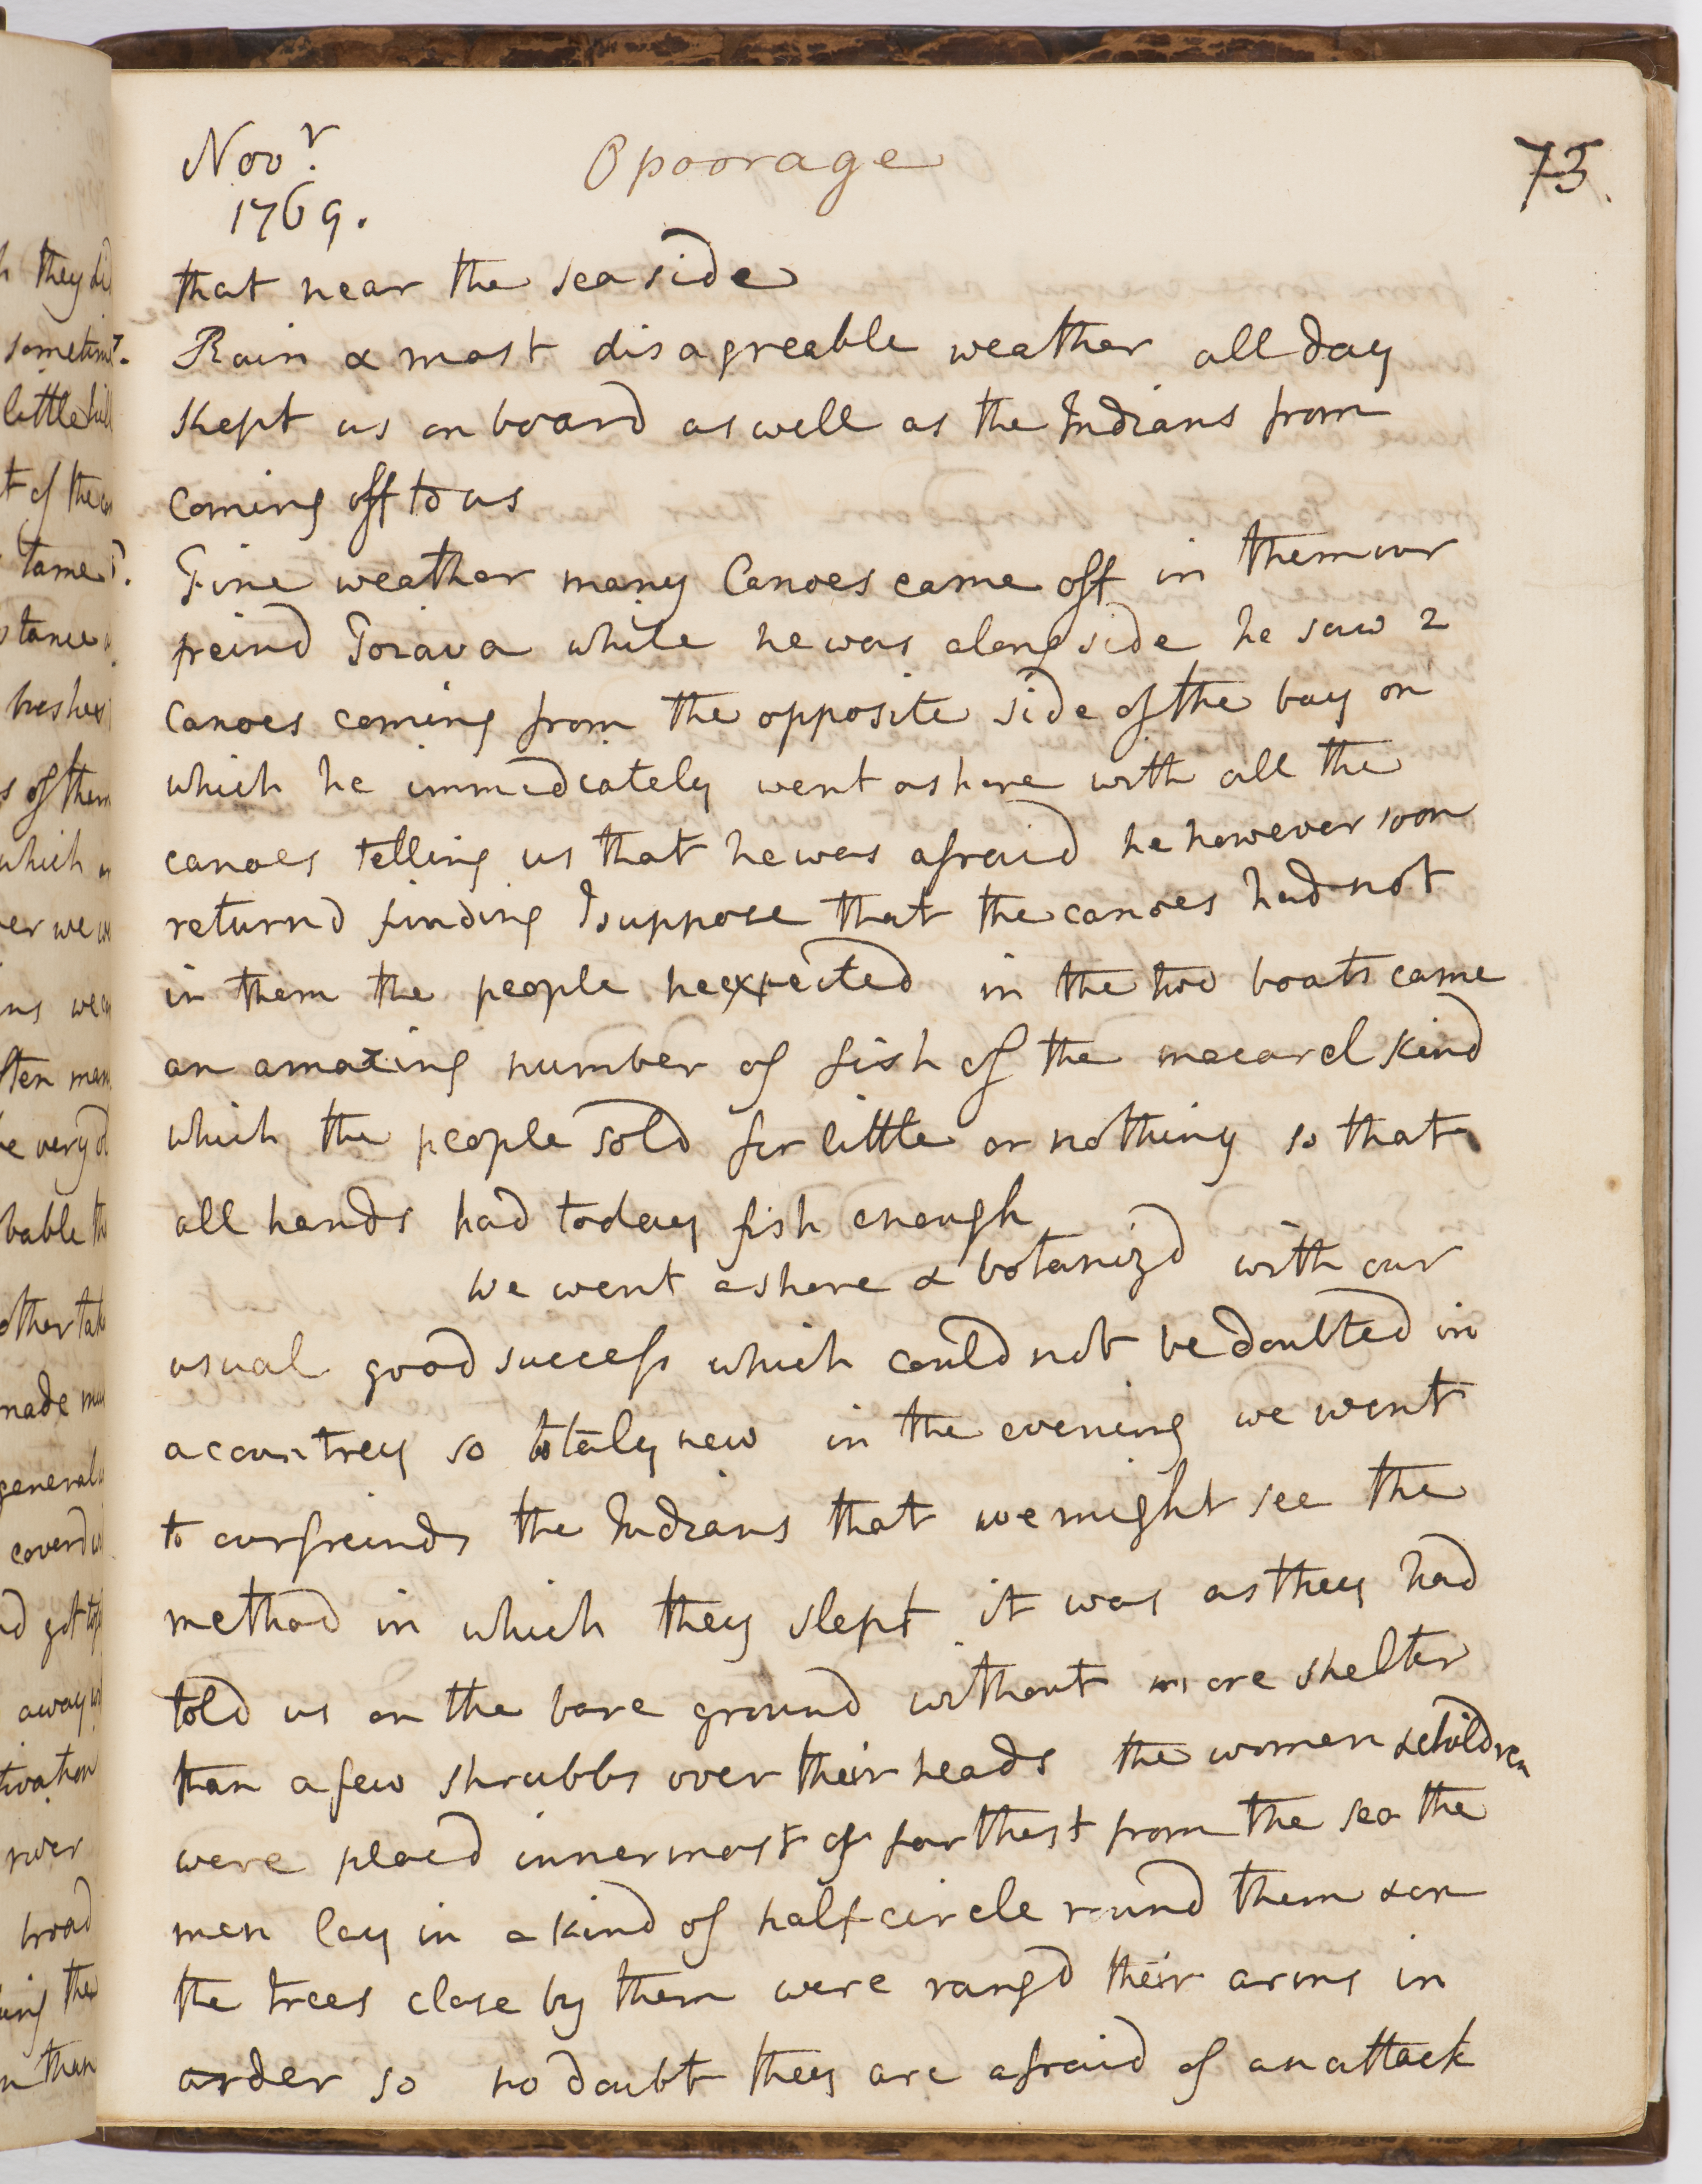 Novr.
1769.
Opoorage
73.
that near the sea side
7. Rain & most disagreable weather all day
kept us on board as well as the Indians from
coming off to us
8. Fine weather many Canoes came off in them our
freind Torava while he was along side he saw 2
Canoes coming from the opposite side of the bay on
which he immediately went ashore with all the
canoes telling us that he was afraid he however soon
returnd finding I suppose that the canoes had not
in them the people he expected in the two boats came
an amazing number of fish of the macarel kind
which the people sold for little or nothing so that
all hands had today fish enough
We went ashore & botanizd with our
usual good success which could not be doubted in
a countrey so totaly new in the evening we went
to our freinds the Indians that we might see the
method in which they slept it was as they had
told us on the bare ground without more shelter
than a few shrubbs over their heads the women & children
were placd innermost or farthest from the sea the
men lay in a kind of half circle round them & on
the trees close by them were rangd their arms in
order so no doubt they are afraid of an attack